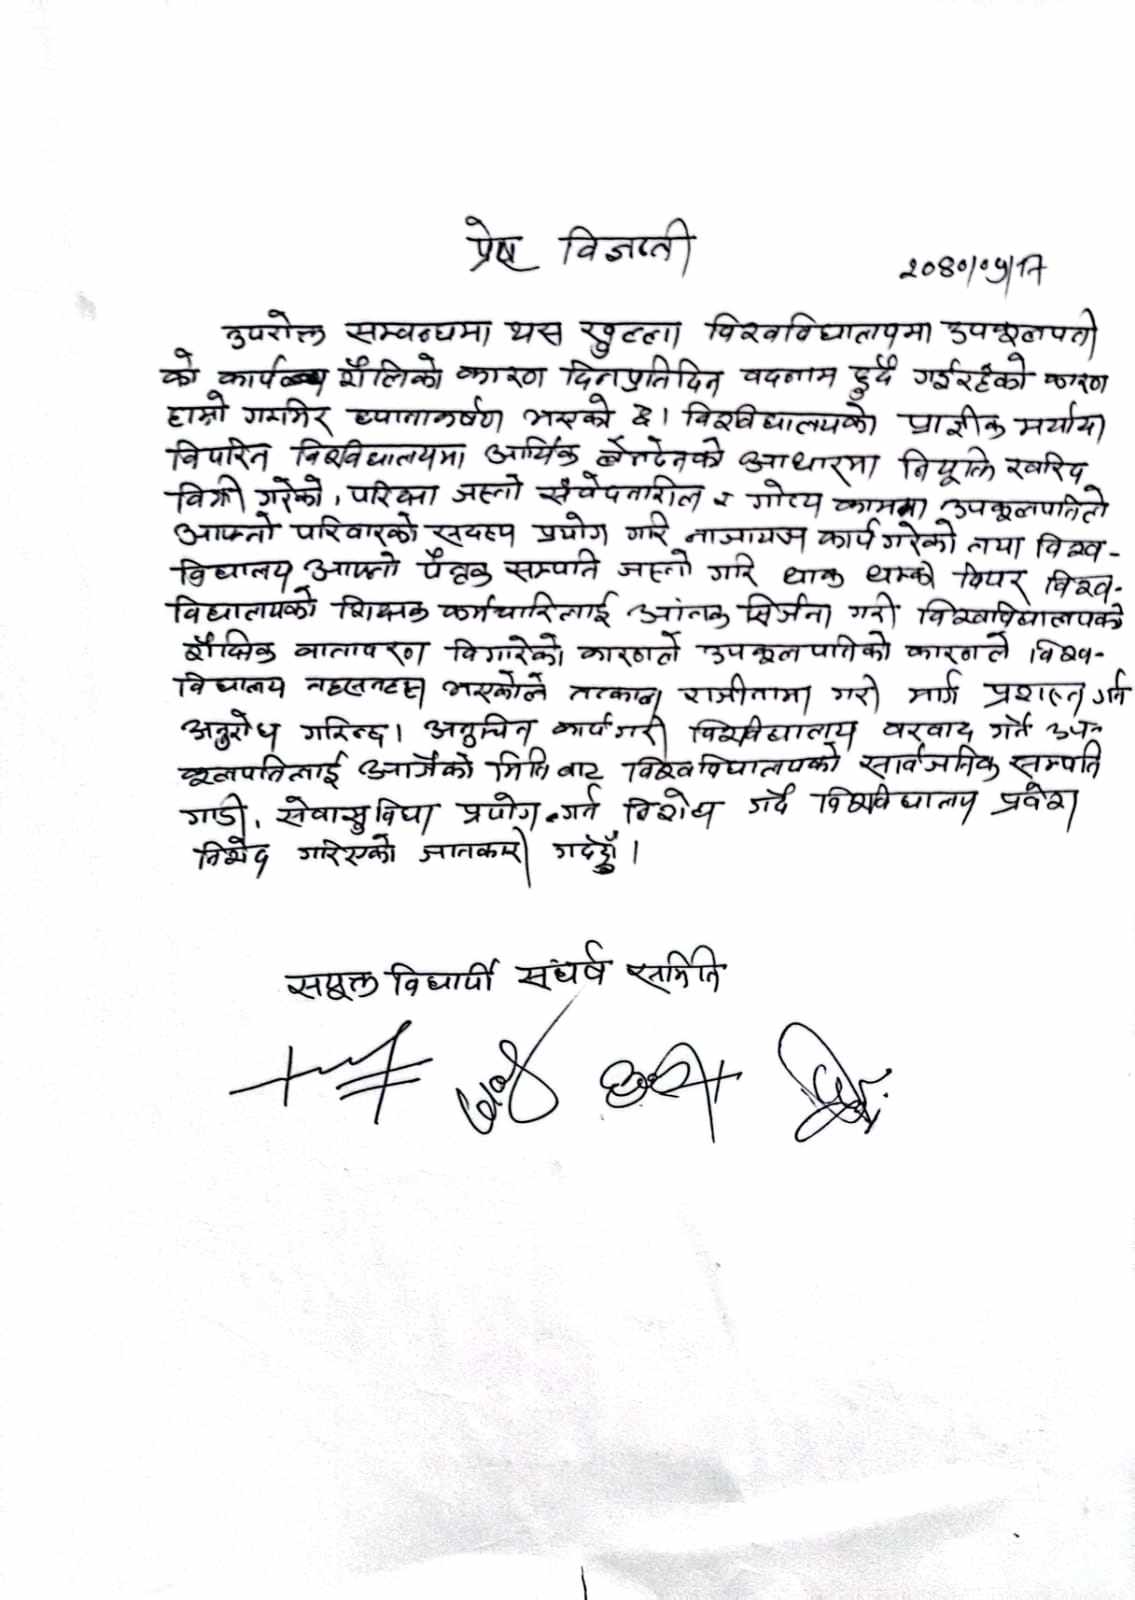 प्रेष विज्ञप्ती
२०८०/०५/१७
उपरोक्त सम्वन्धमा यस खुल्ला विश्वविद्यालयमा उपकूलपती
को कार्य शैलिको कारण दिनप्रतिदिन वदनाम हुदै गईरहेको कारण
हाम्रो गम्भिर ध्यानाकर्षण भएको छ। विश्वविद्यालयको प्राज्ञीक मर्यादा
विपरित विश्वविद्यालयमा आर्थिक लेनदेनको आधारमा नियूक्ति खरिद
विक्री गरेको, परिक्षा जस्तो संवेदनशील र गोप्य काममा उपकूलपतिले
आफ्नो परिवारको सदस्य प्रयोग गरि नाजायज कार्य गरेको तथा विश्व-
विद्यालय आफ्नो पैतृक सम्पति जस्तो गरि धाक धम्की दिएर विश्व-
विद्यालयको शिक्षक कर्मचारिलाई आंतक सिर्जना गरी विश्वविद्यालयको
शैक्षिक वातावरण विगारेको कारणले उपकूलपतिको कारणले विश्व-
विद्यालय तहसनहस भएकोले तत्काल राजीनामा गरी मार्ग प्रशस्त गर्न
अनुरोध गरिन्छ। अनुचित कार्य गरी विश्वविद्यालय वरवाद गर्ने उप-
कूलपतिलाई आजैको मिति बाट विश्वविद्यालयको सार्वजनिक सम्पति
गाडी, सेवासुविधा प्रयोग गर्न विशेध गर्दै विश्वविद्यालय प्रवेश
निषेद गरिएको जानकारी गर्दछौँ।
सयूक्त विद्यार्थी संघर्ष समिति